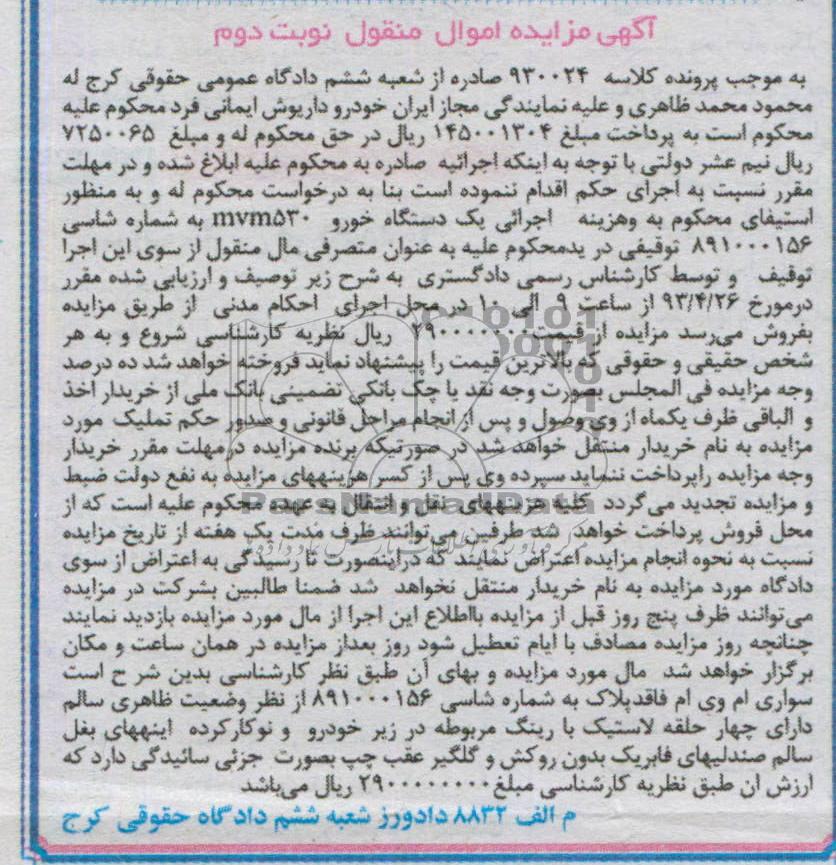 آگهی مزایده اموال منقول نوبت دوم
به موجب پرونده کلاسه ۹۳۰۰۲۴ صادره از شعبه ششم دادگاه عمومی حقوقی کرج له
محمود محمد ظاهری و علیه نمایندگی مجاز ایران خودرو داریوش ایمانی فرد محکوم علیه
محکوم است به پرداخت مبلغ ۱۴۵۰۰۱۳۰۴ ریال در حق محکوم له و مبلغ ۷۲۵۰۰۶۵
ریال نیم عشر دولتی با توجه به اینکه اجرائیه صادره به محکوم علیه ابلاغ شده و در مهلت
مقرر نسبت به اجرای حکم اقدام ننموده است بنا به درخواست محکوم له و به منظور
استیفای محکوم به وهزینه اجرائی یک دستگاه خورو mvm۵۳۰ به شماره شاسی
۸۹۱۰۰۰۱۵۶ توقیفی در یدمحکوم علیه به عنوان متصرفی مال منقول از سوی این اجرا
توقیف و توسط کارشناس رسمی دادگستری به شرح زیر توصیف و ارزیابی شده مقرر
درمورخ ۹۳/۴/۲۶ از ساعت ۹ الی ۱۰ در محل اجرای احکام مدنی از طریق مزایده
بفروش می‌رسد مزایده از قیمت ریال نظریه کارشناسی شروع و به هر
شخص حقیقی و حقوقی که بالاترین قیمت را پیشنهاد نماید فروخته خواهد شد ده درصد
وجه مزایده فی المجلس بصورت وجه نقد یا چک بانکی تضمینی بانک ملی از خریدار اخذ
و الباقی ظرف یکماه از وی وصول و پس از انجام مراحل قانونی و صدور حکم تملیک مورد
مزایده به نام خریدار منتقل خواهد شد در صورتیکه برنده مزایده درمهلت مقرر خریدار
وجه مزایده راپرداخت ننماید سپرده وی پس از کسر هزینههای مزایده به نفع دولت ضبط
و مزایده تجدید می‌گردد کلیه هزینههای نقل و انتقال به عهده محکوم علیه است که از
محل فروش پرداخت خواهد شد طرفین می‌توانند ظرف مدت یک هفته از تاریخ مزایده
نسبت به نحوه انجام مزایده اعتراض نمایند که دراینصورت تا رسیدگی به اعتراض از سوی
دادگاه مورد مزایده به نام خریدار منتقل نخواهد شد ضمنا طالبین بشرکت در مزایده
می‌توانند ظرف پنج روز قبل از مزایده بااطلاع این اجرا از مال مورد مزایده بازدید نمایند
چنانچه روز مزایده مصادف با ایام تعطیل شود روز بعداز مزایده در همان ساعت و مکان
برگزار خواهد شد مال مورد مزایده و بهای آن طبق نظر کارشناسی بدین شر ح است
سواری ام وی ام فاقدپلاک به شماره شاسی ۸۹۱۰۰۰۱۵۶ از نظر وضعیت ظاهری سالم
دارای چهار حلقه لاستیک با رینگ مربوطه در زیر خودرو و نوکارکرده اینههای بغل
سالم صندلیهای فابریک بدون روکش و گلگیر عقب چپ بصورت جزئی سائیدگی دارد که
ارزش ان طبق نظریه کارشناسی مبلغ ریال می‌باشد
م الف ۸۸۳۲ دادورز شعبه ششم دادگاه حقوقی کرج
ParsNamadData